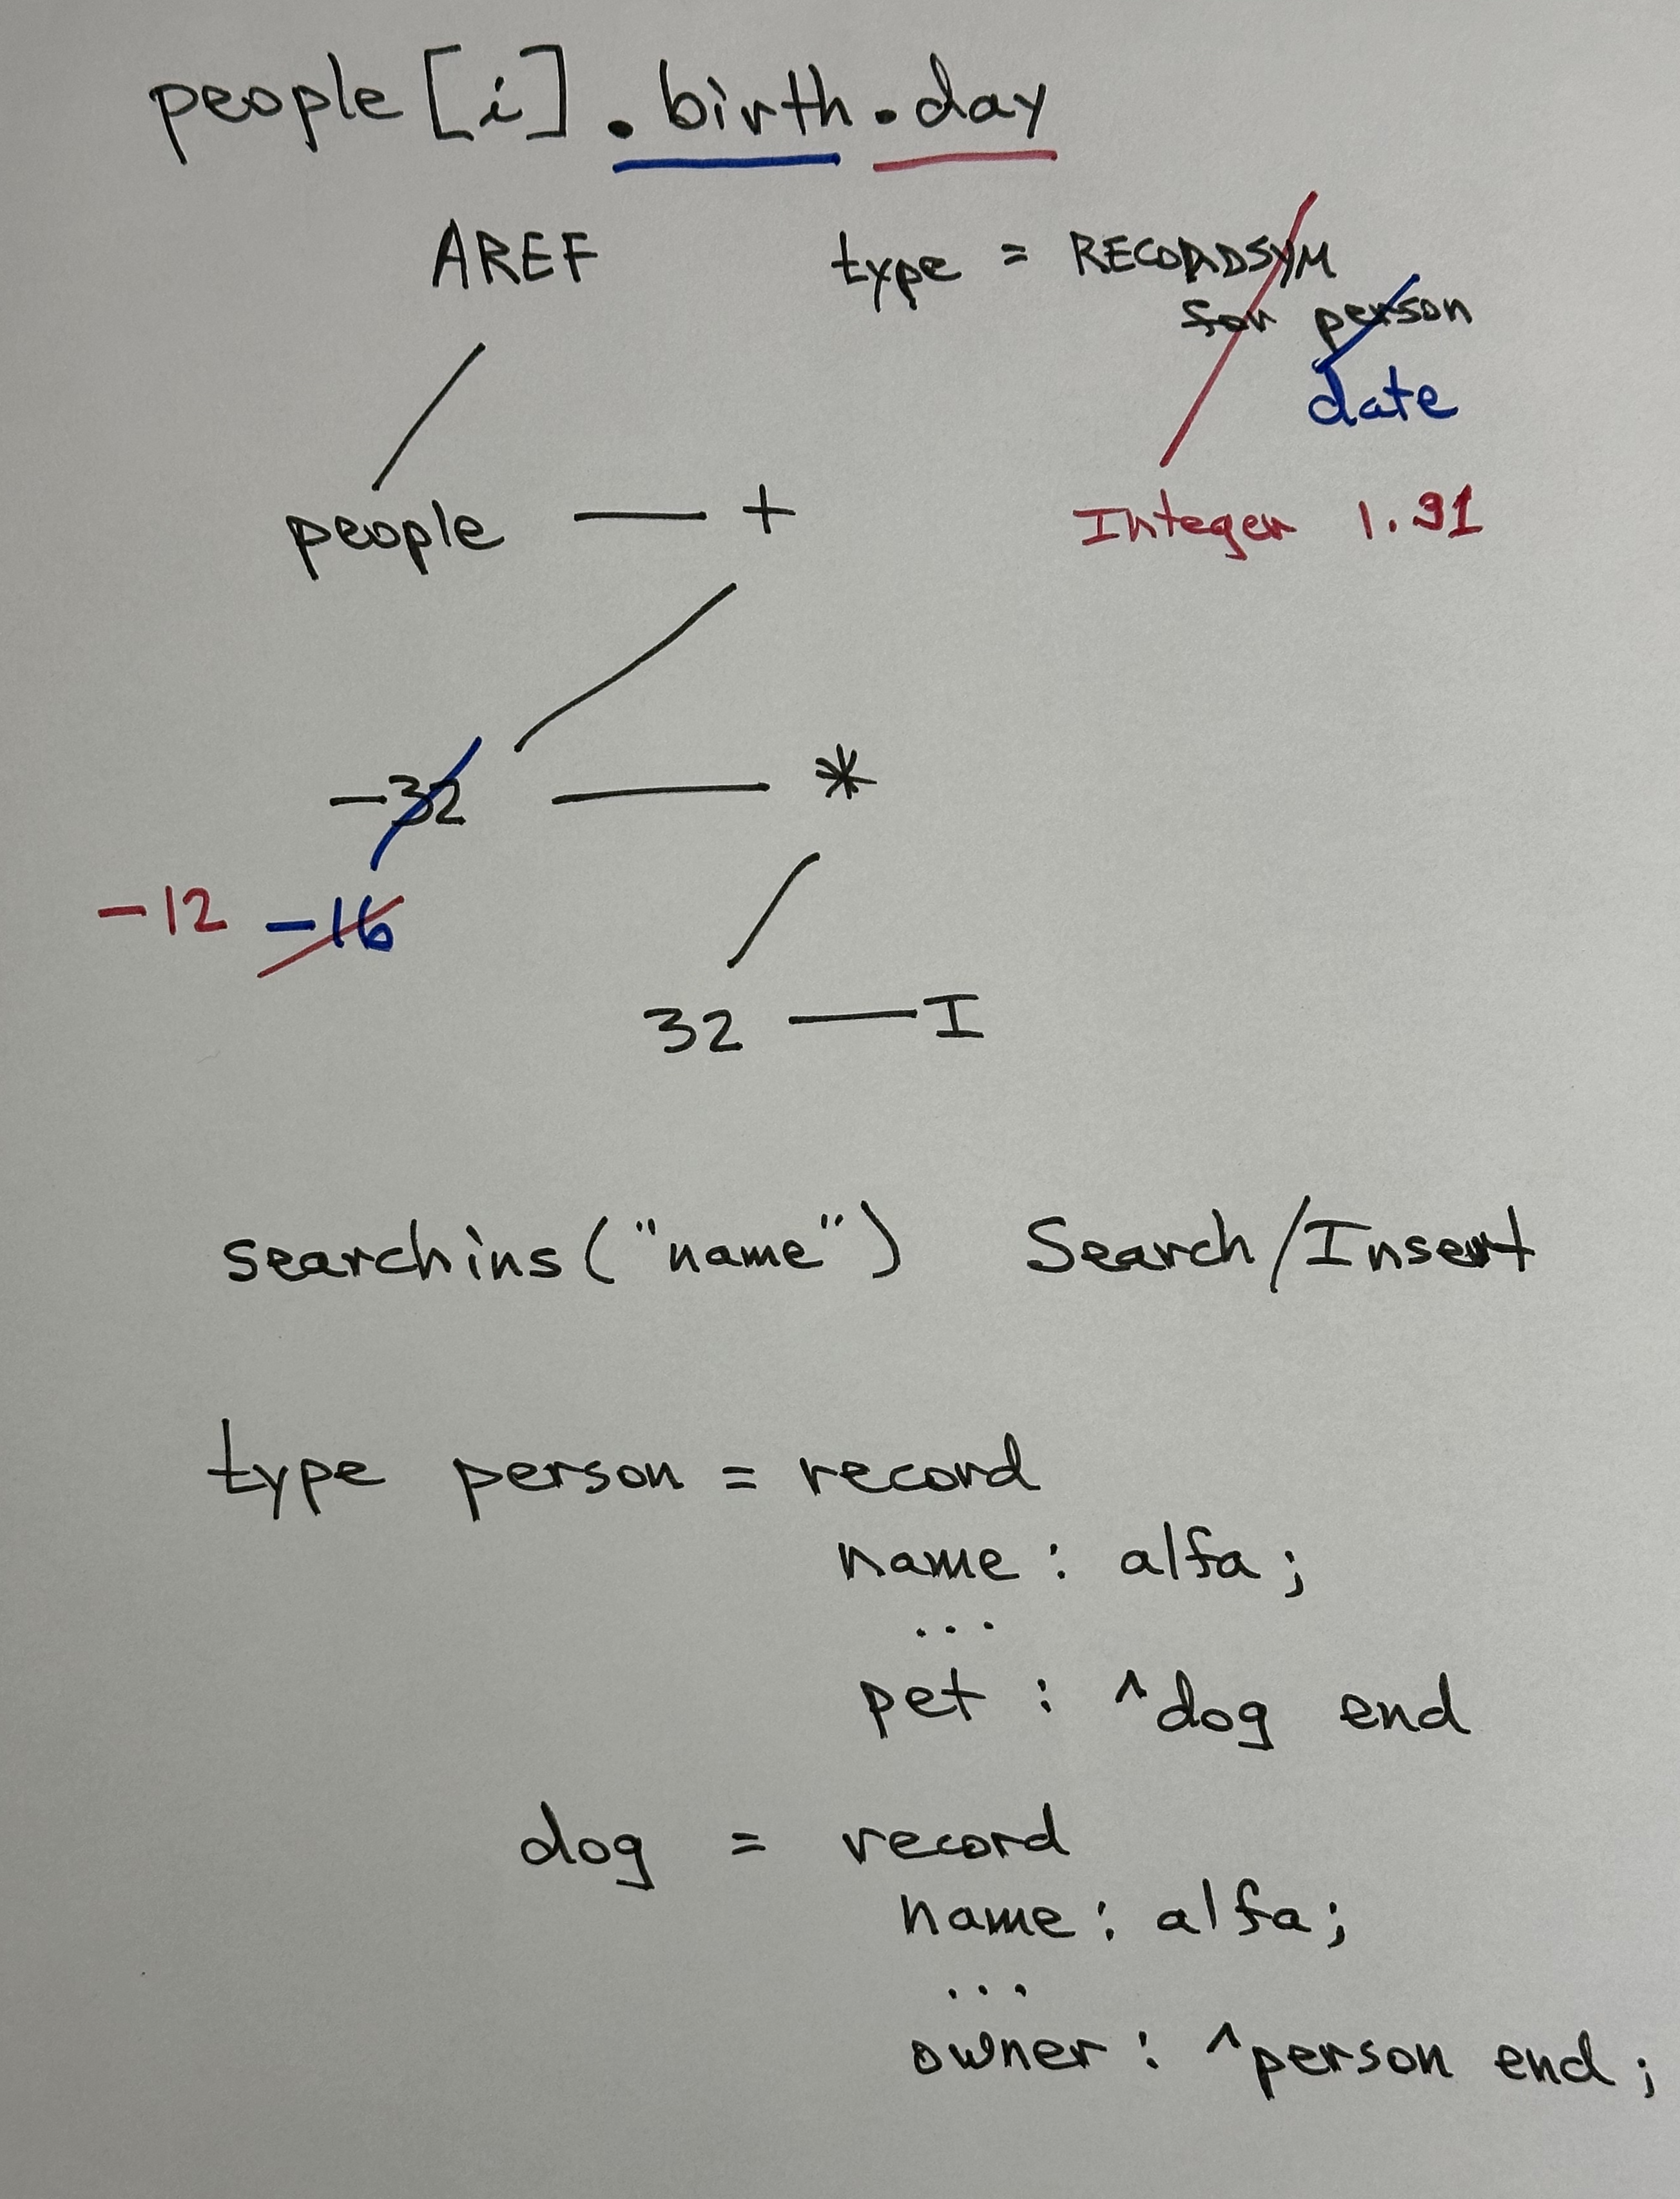 people[i].birth.day
AREF type = RECORDSYM
for person
date
people — + Integer 1..31
-32 — *
-12 -16
32 — I
searchins("name") Search/Insert
type person = record
name : alfa;
...
pet : ^dog end
dog = record
name : alfa;
...
owner : ^person end;